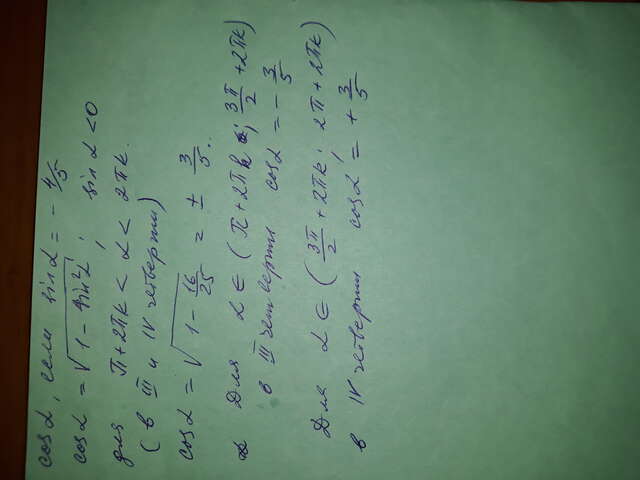 cos α, если sin α = - 4/5
cos α = √(1 - sin²α) ; sin α < 0
для π + 2πk < α < 2πk.
(в III и IV четверти)
cos α = √(1 - 16/25) = ± 3/5.
Для α ∈ (π + 2πk ; 3π/2 + 2πk)
в III четверти cos α = - 3/5
Для α ∈ (3π/2 + 2πk ; 2π + 2πk)
в IV четверти cos α = + 3/5